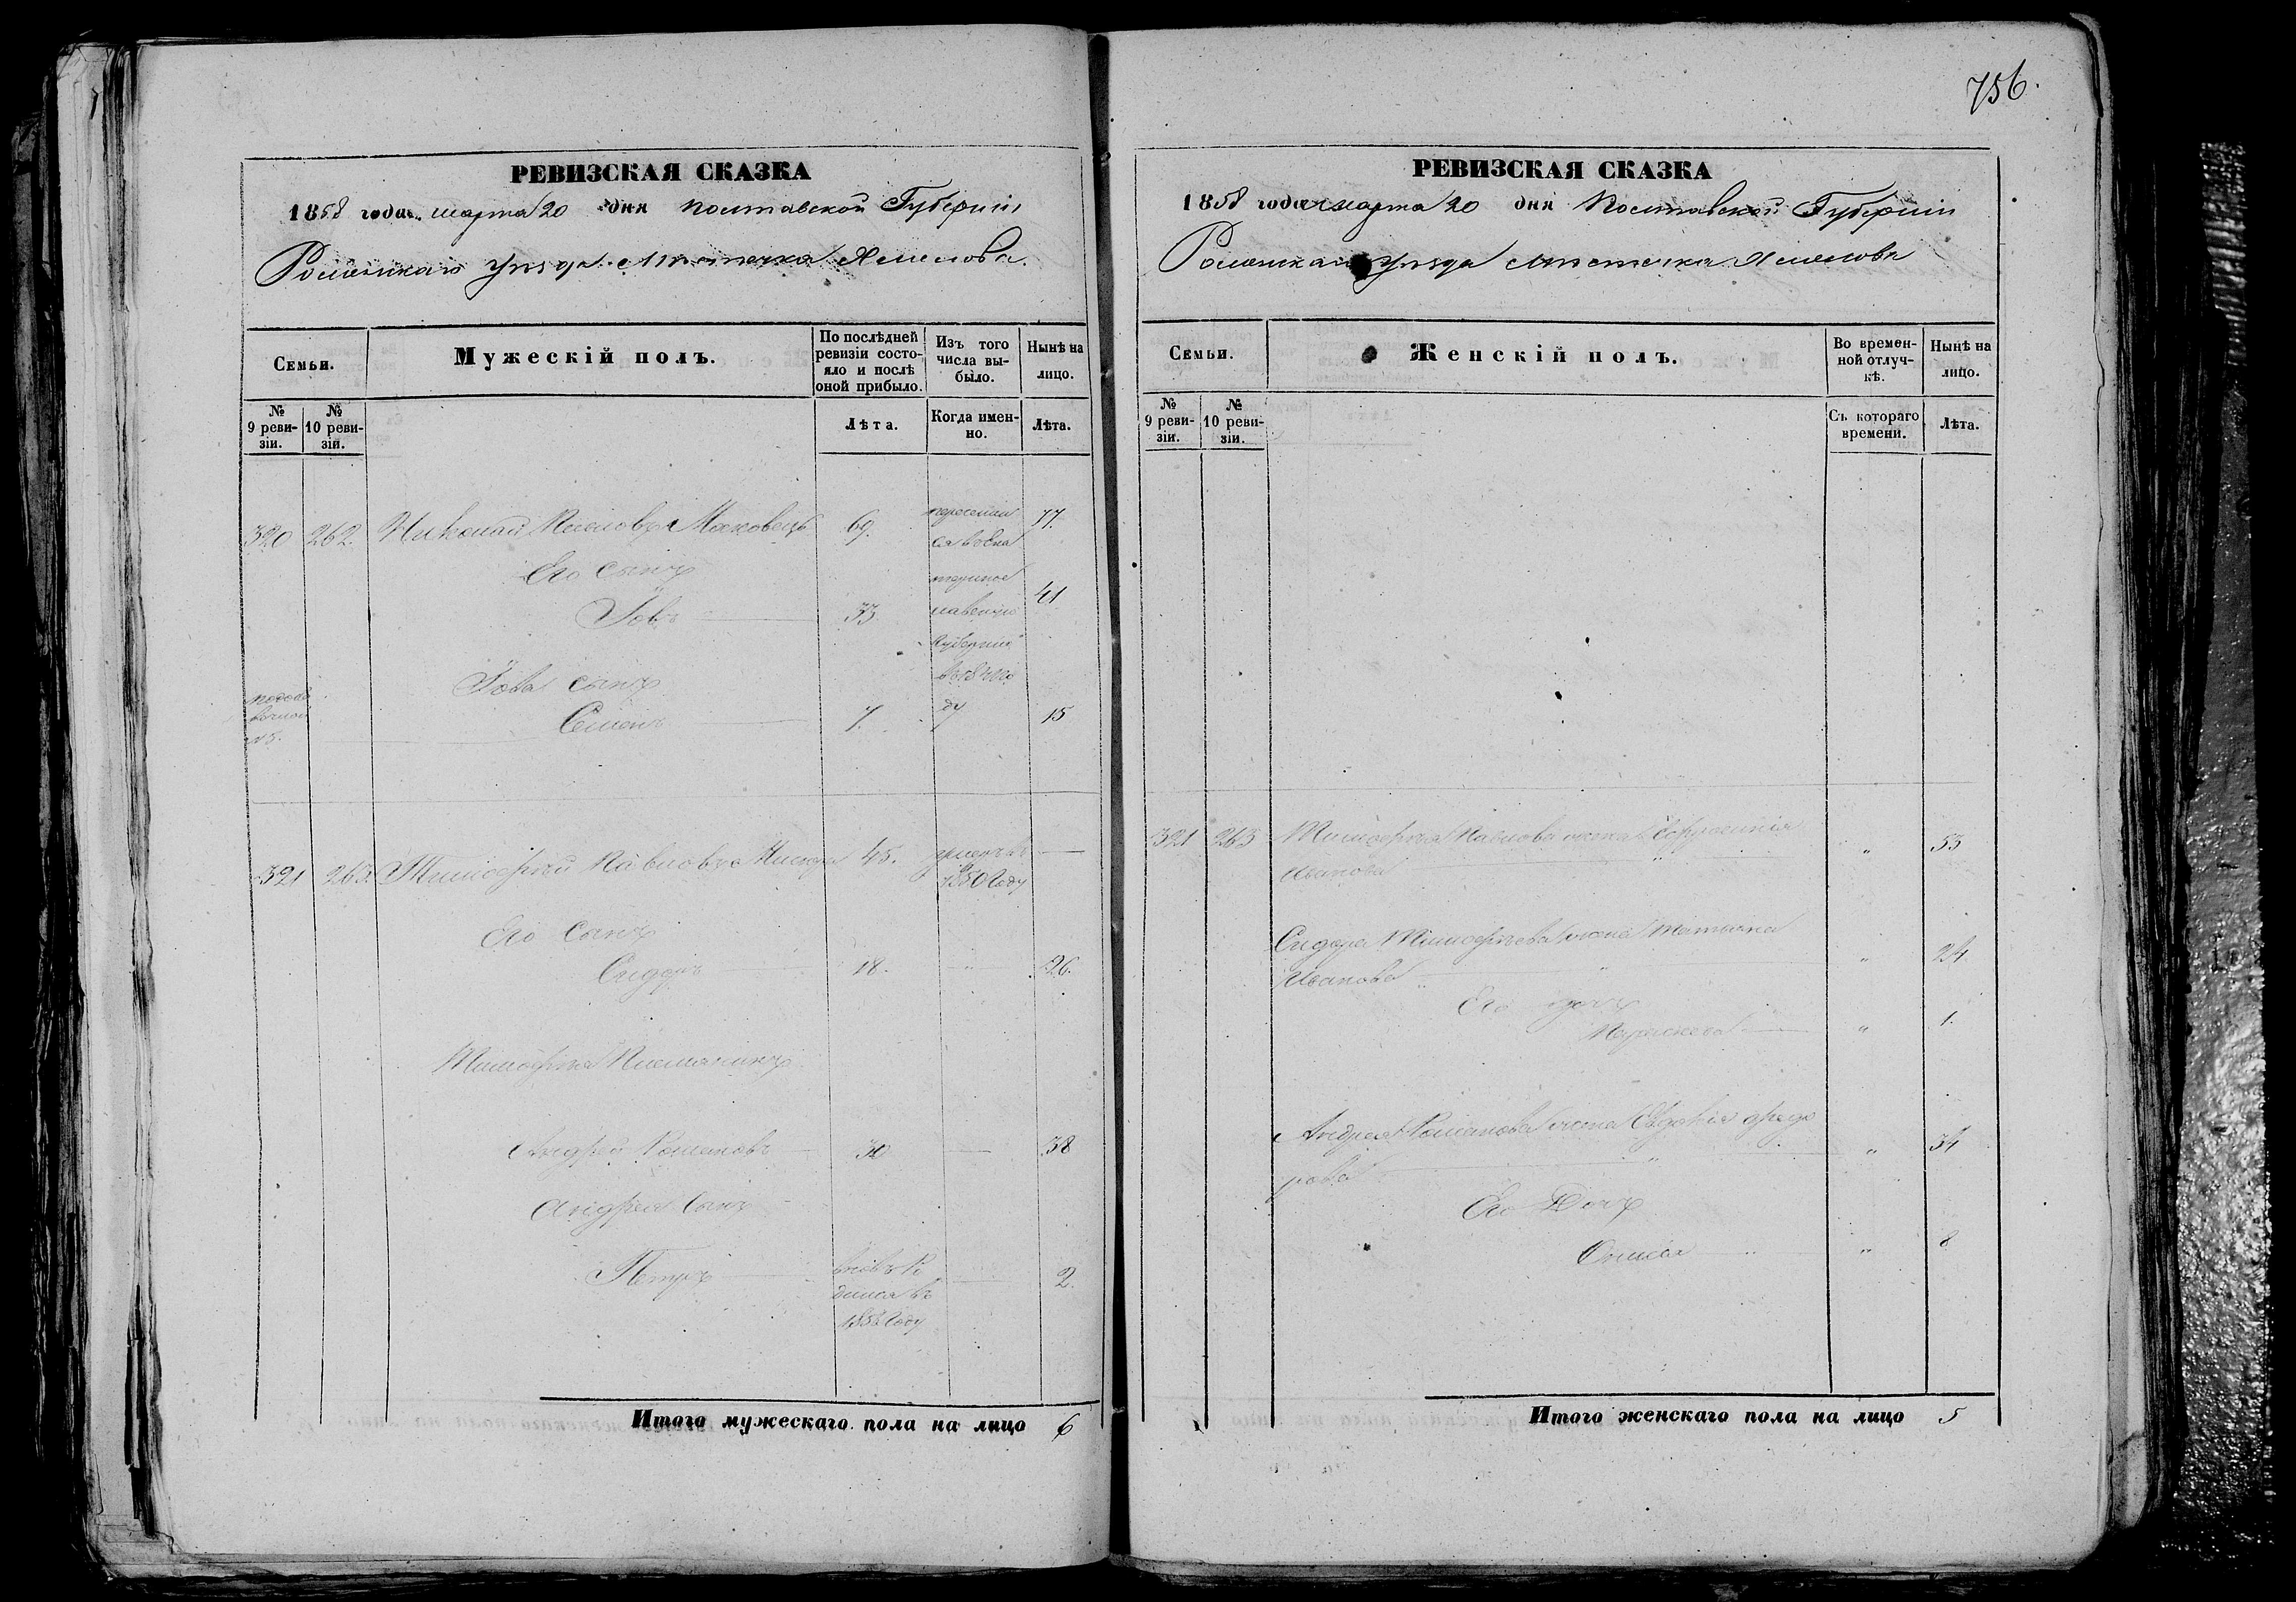 756.
РЕВИЗСКАЯ СКАЗКА
1858 года марта 20 дня Полтавской Губерніи
Роменскаго Уѣзда Мѣстечка Хмелова
Семьи.
Мужескій полъ.
По послѣдней ревизіи состояло и послѣ оной прибыло.
Изъ того числа выбыло.
Нынѣ на лицо.
№ 9 ревизіи.
№ 10 ревизіи.
Лѣта.
Когда именно.
Лѣта.
320 262. Николай Маковецъ 69. 77.
Его сынъ
Іовъ 33 41
Губернію
Іова сынъ
Семенъ 7. 15
321 263. Тимофѣй Павловъ 45. умеръ въ 1850 Году
Его Сынъ
Сидоръ 18. " 26.
Тимофѣя Племяникъ
Андрей Романовъ 30 38
Андрея Сынъ
Петръ 2.
Итого мужескаго пола на лицо 6
РЕВИЗСКАЯ СКАЗКА
1858 года марта 20 дня Полтавской Губерніи
Роменскаго Уѣзда Мѣстечка Хмелова
Семьи.
Женскій полъ.
Во временной отлучкѣ.
Нынѣ на лицо.
№ 9 ревизіи.
№ 10 ревизіи.
Съ котораго времени.
Лѣта.
321 263 Тимофѣя Павлова жена Ефросинія " 53
Иванова
Сидора Тимофѣева жена Татьяна " 24
Иванова
Его дочь
" 1.
Андрея Романова жена Евдокія Федо " 34
рова
Его Дочь
" 8
Итого женскаго пола на лицо 5